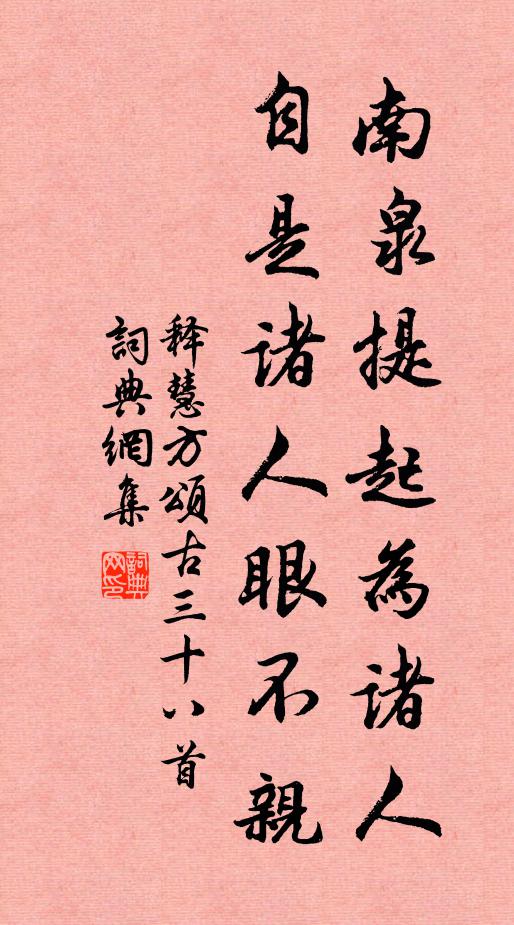 南泉提起為诸人
自是诸人眼不親
释慧方頌古三十八首
詞典網集
詞典网印